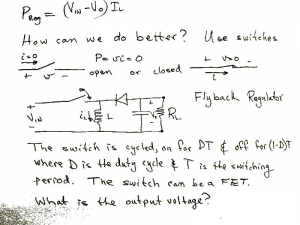 P_Reg = (V_IN - V_o) I_L
How can we do better? Use switches
i=0 P = vi = 0 + v=0 -
+ v - open or closed i
Flyback Regulator
+ V_IN - i_L L + V_o - R_L
The switch is cycled, on for DT & off for (1-D)T
where D is the duty cycle & T is the switching
period. The switch can be a FET.
What is the output voltage?